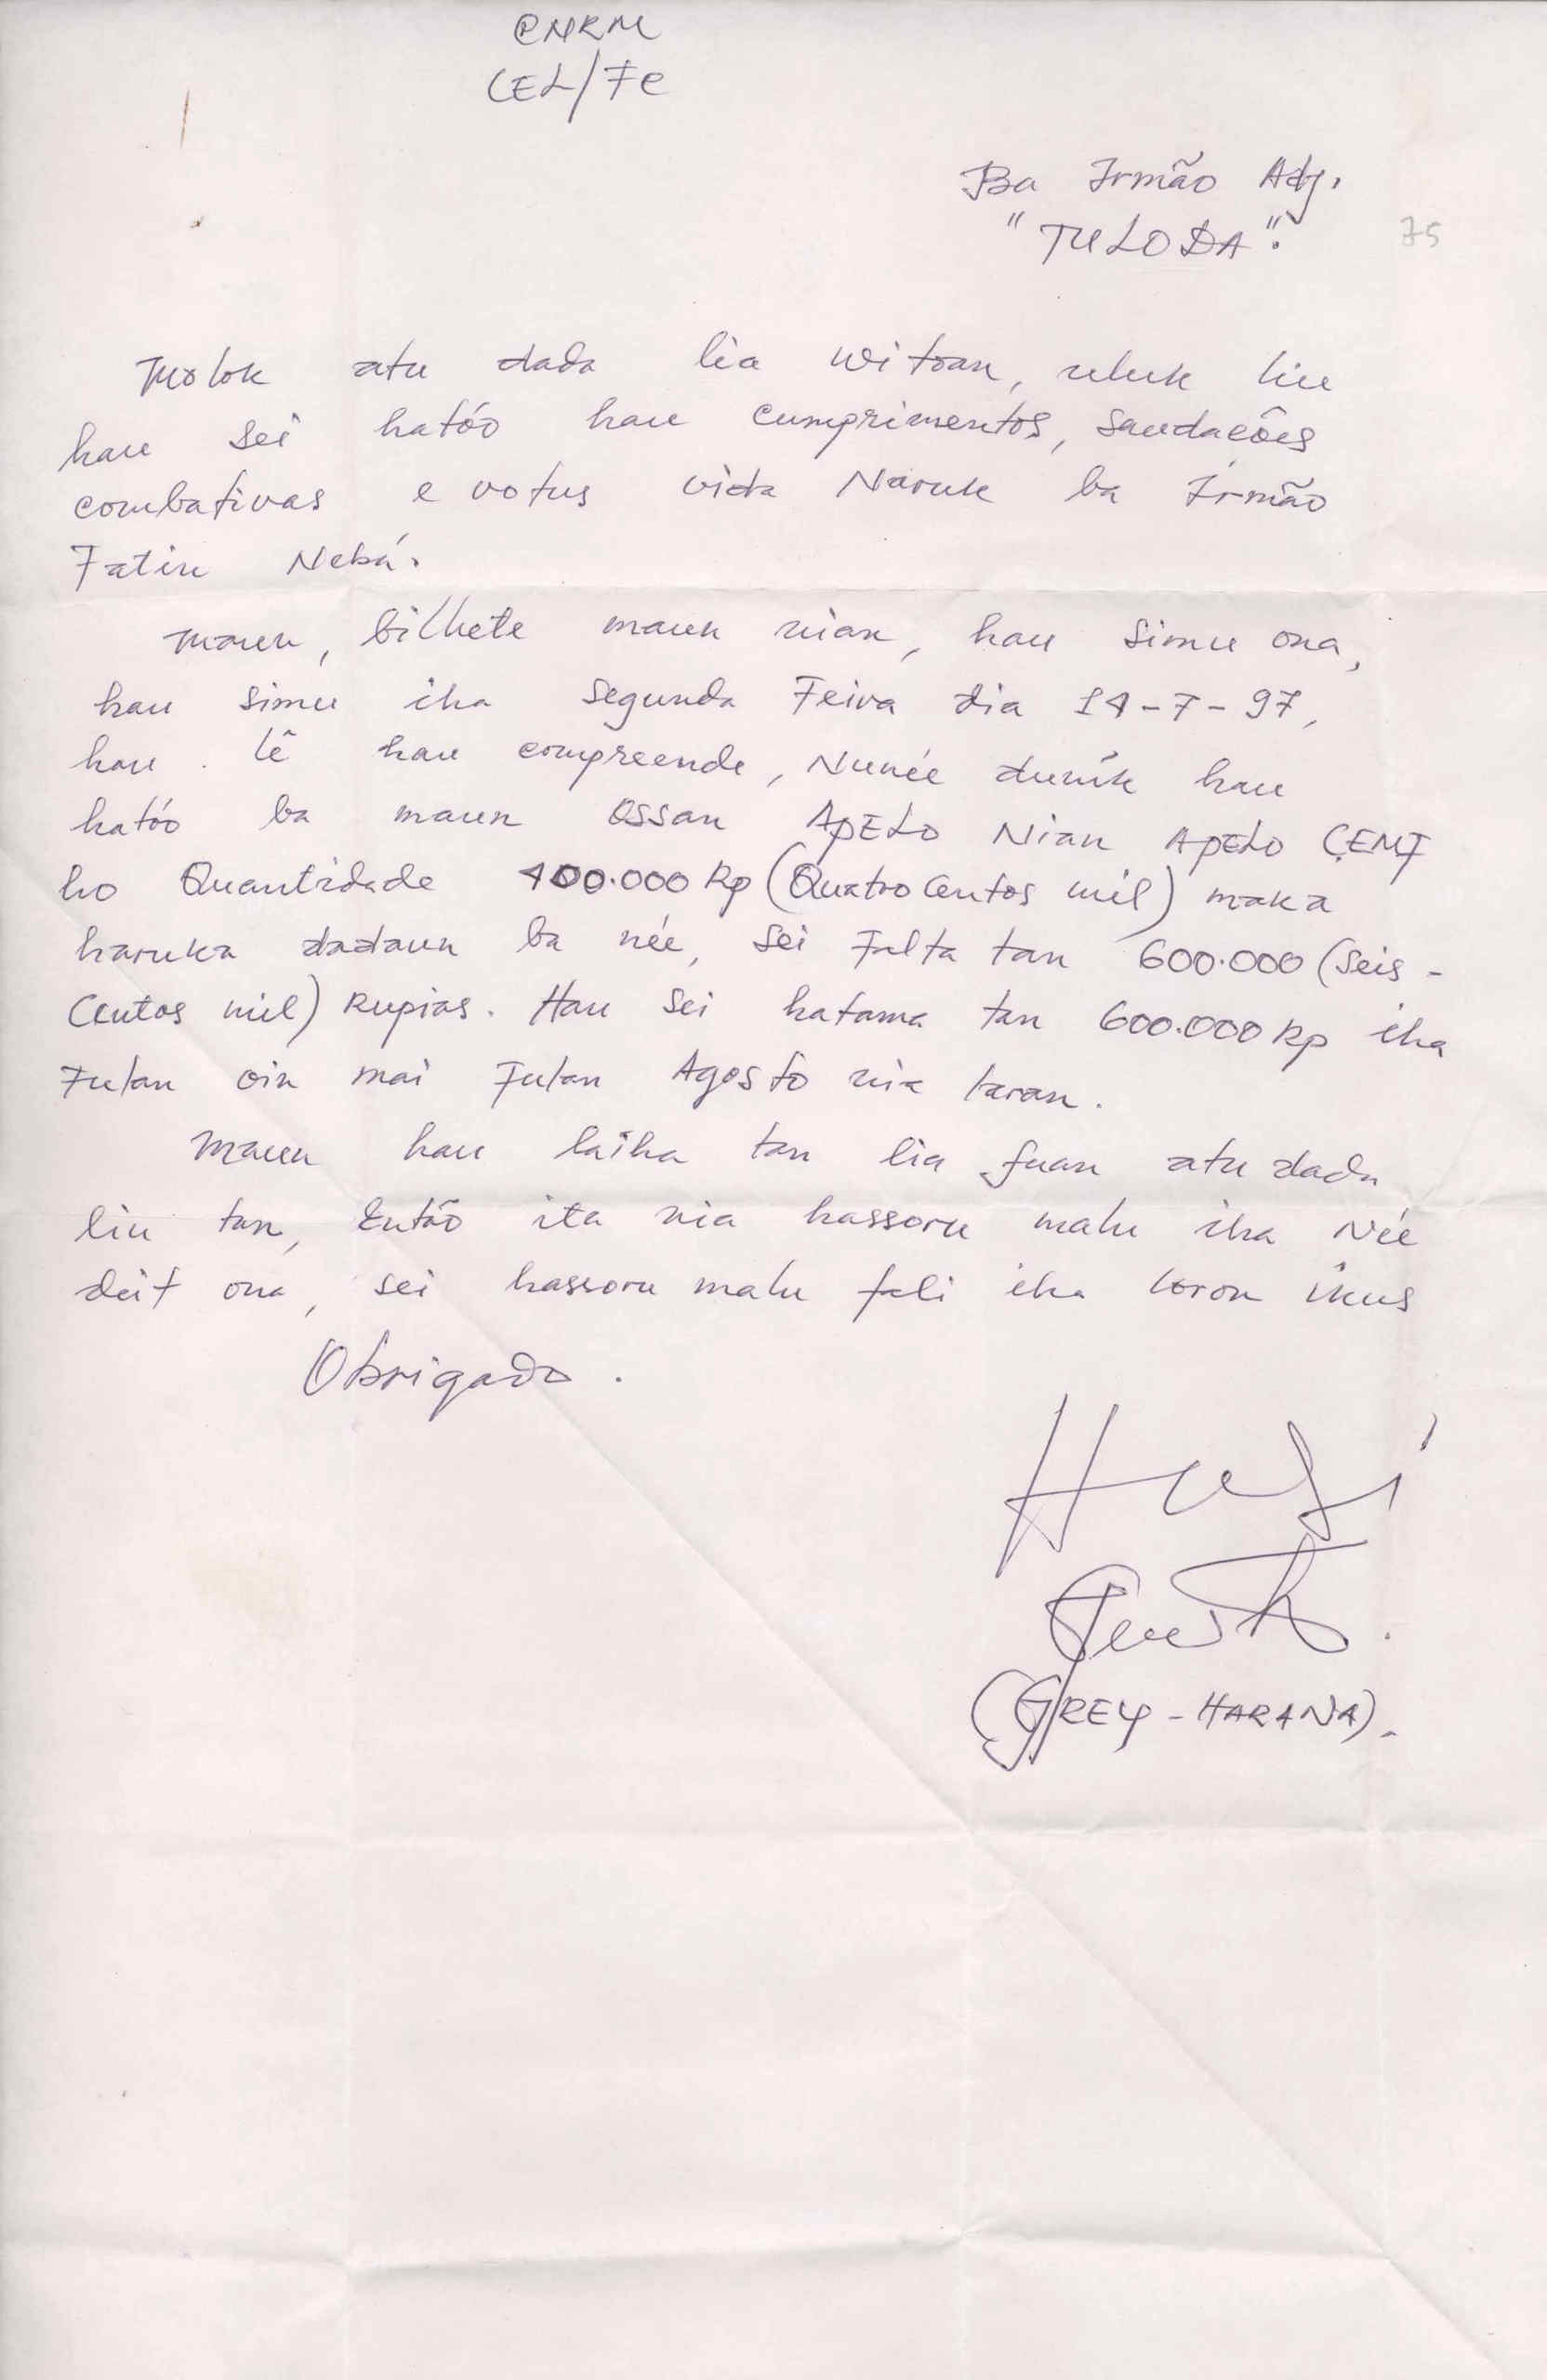 CNRM
CEL/FC
Ba Irmão Adj.
"TULODA".
75
Molok atu dada lia uitoan, uluk liu
hau sei hatóo hau cumprimentos, saudacões
combativas e votus vida Naruk ba Irmão
Fatin Nebá.
Maun, bilhete maun nian, hau simu ona,
hau simu iha Segunda Feira dia 14-7-97,
hau lê hau compreende, Nunée dunik hau
hatóo ba maun ossan APELO Nian APELO CEMF
ho Quantidade 400.000 Rp (Quatro Centos mil) maka
haruka dadaun ba née, sei Falta tan 600.000 (Seis-
Centos mil) Rupias. Hau sei hatama tan 600.000 Rp iha
Fulan oin mai Fulan Agosto nia laran.
Maun hau laiha tan lia fuan atu dada
liu tan, Então ita nia hassoru malu iha Née
deit ona, sei hassoru malu fali iha loron ikus
Obrigado.
(GREY-HARANA).